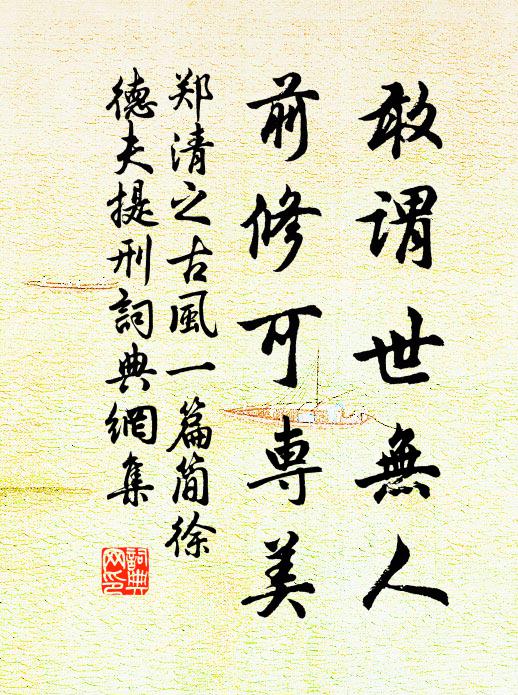 敢谓世無人
前修可専美
郑清之古風一篇简徐
德夫提刑詞典網集
詞典
网印